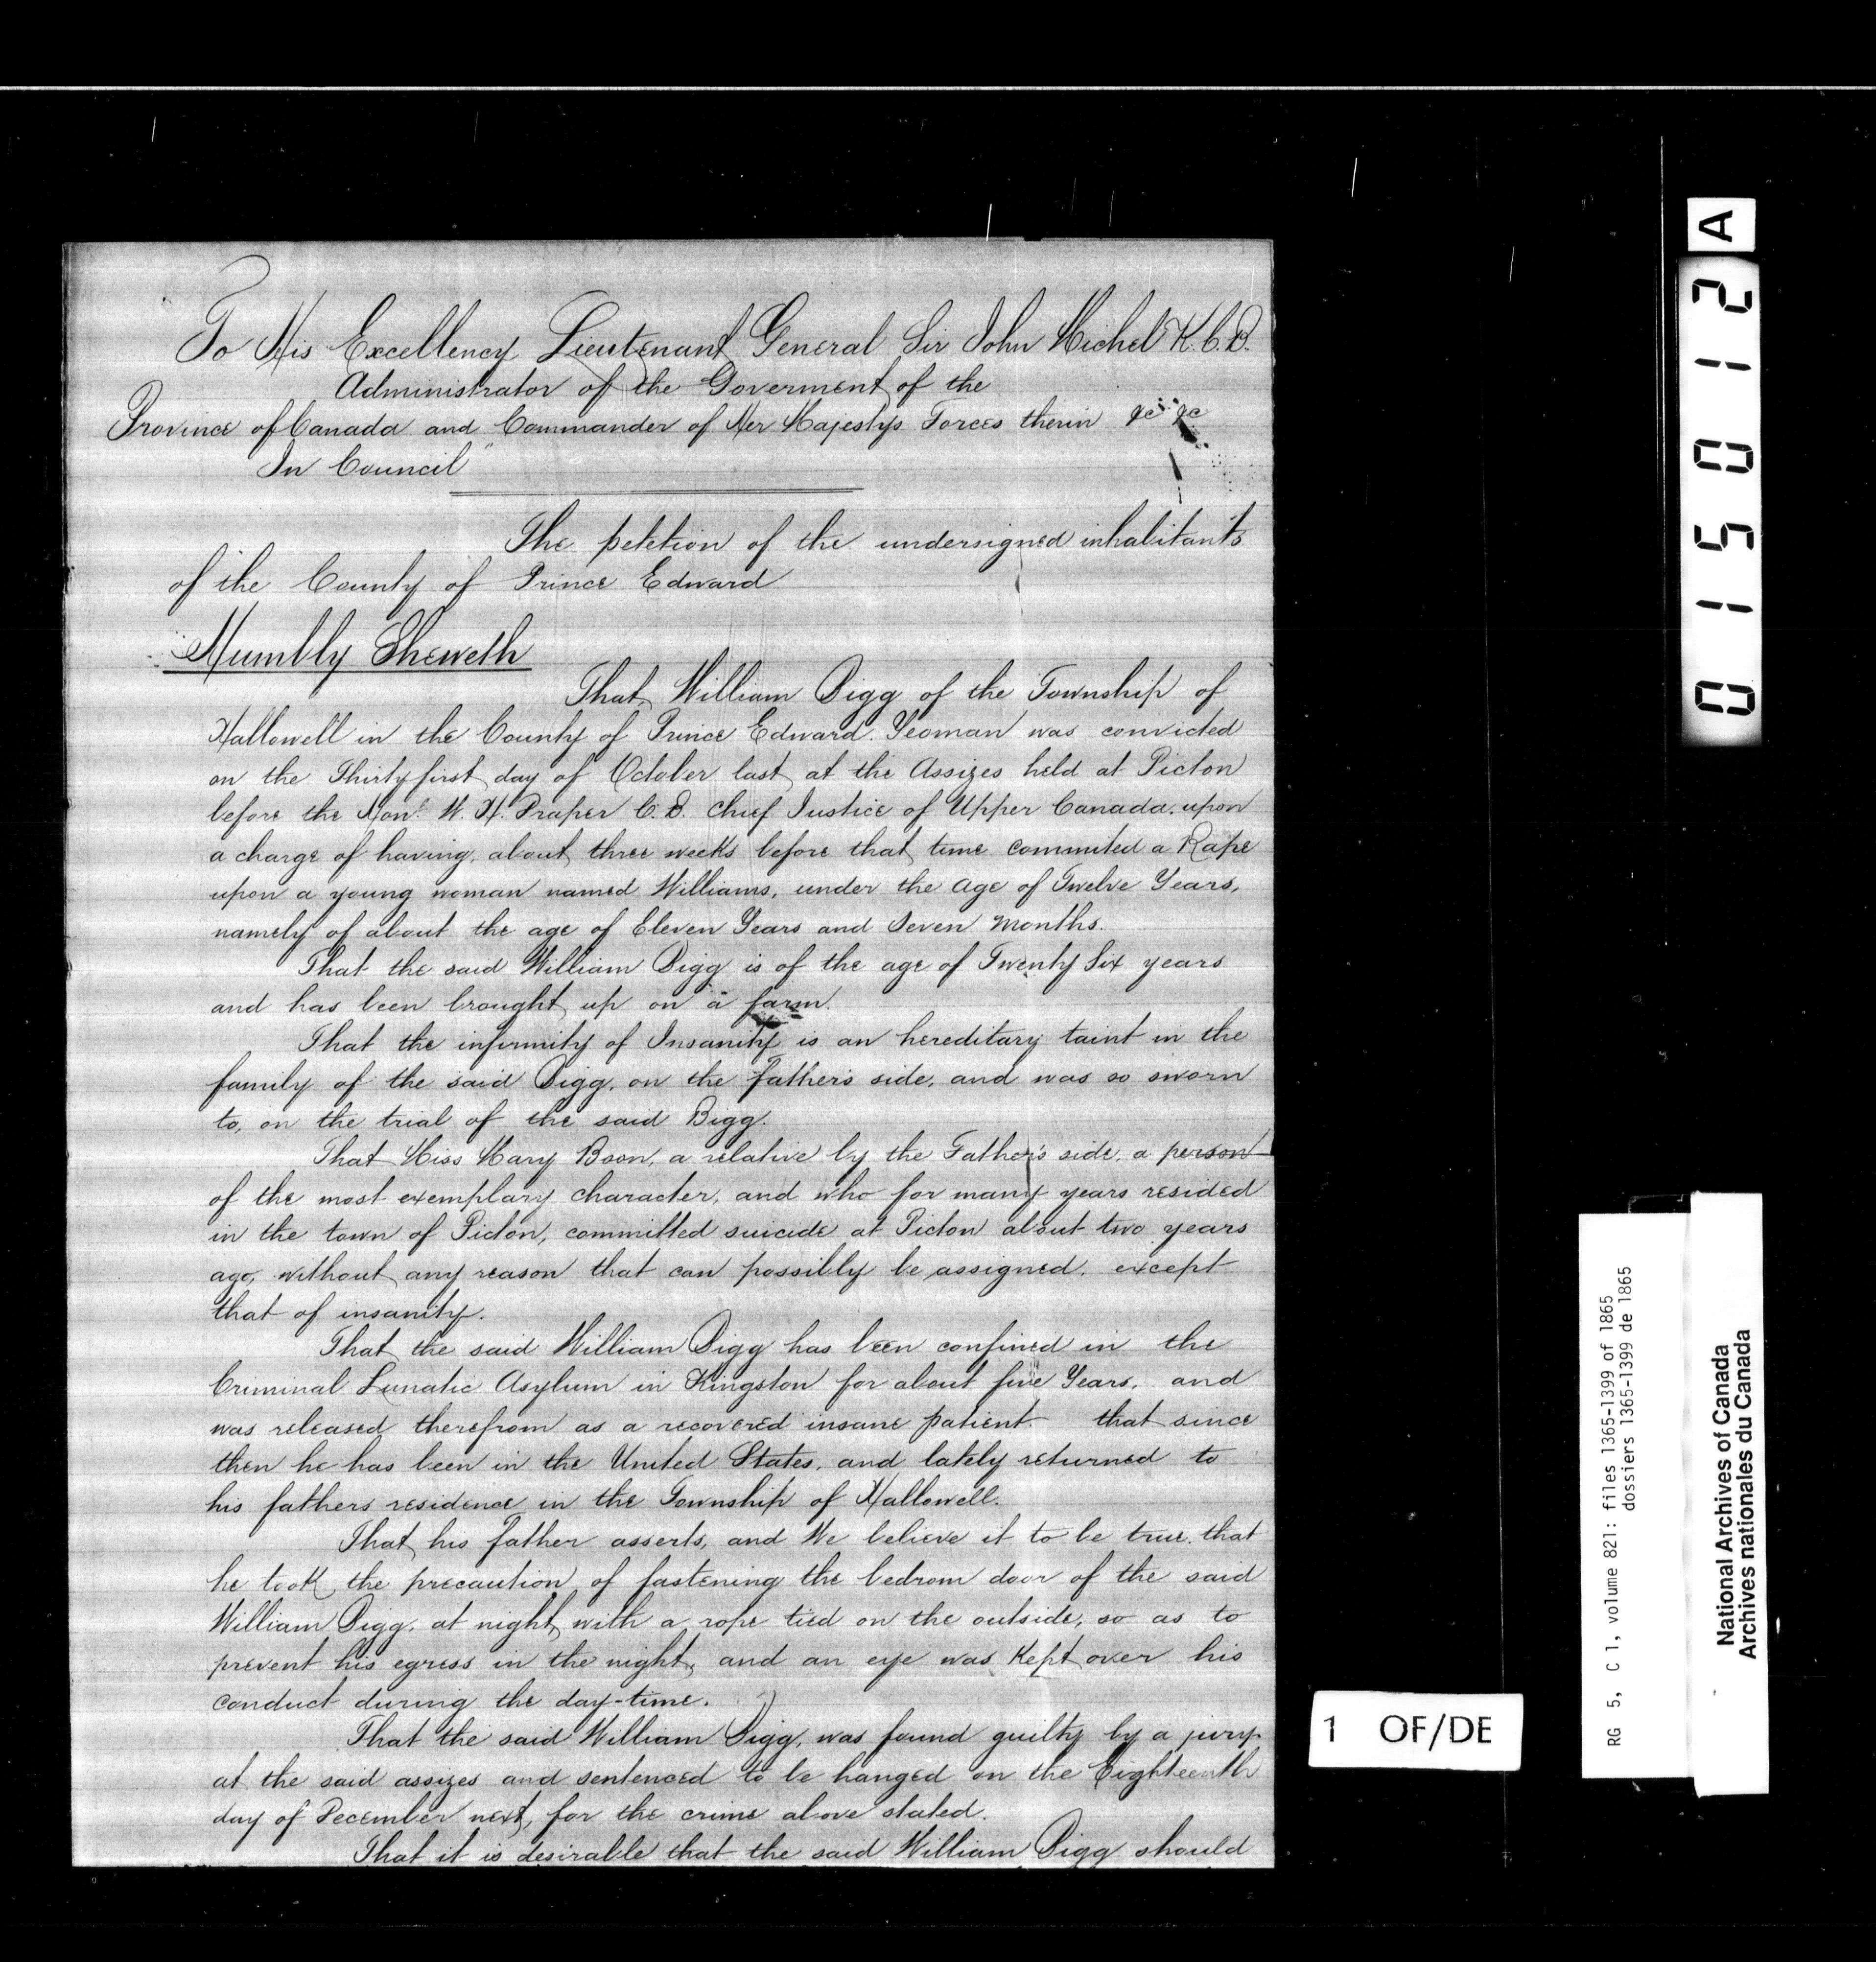 To His Excellency Lieutenant General Sir John Michel K.C.B.
Administrator of the Goverment of the
Province of Canada and Commander of Her Majestys Forces therin &c &c
In Council
The petetion of the undersigned inhabitants
of the County of Prince Edward
Humbly Sheweth
That William Bigg of the Township of
Hallowell in the County of Prince Edward. Yeoman was convicted
on the Thirtyfirst day of October last at the Assizes held at Picton
before the Honl. W. H. Draper C.B. Chief Justice of Upper Canada. upon
a charge of having, about three weeks before that time commited a Rape
upon a young woman named Williams, under the age of Twelve Years,
namely of about the age of Eleven Years and Seven months.
That the said William Bigg is of the age of Twenty Six years
and has been brought up on a farm.
That the infirmity of Insanity is an hereditary taint in the
family of the said Bigg, on the father's side, and was so sworn
to, on the trial of the said Bigg.
That Miss Mary Boon, a relative by the Father's side, a person
of the most exemplary character, and who for many years resided
in the town of Picton, committed suicide at Picton about two years
ago, without any reason that can possilbly be assigned, except
that of insanity.
That the said William Bigg has been confined in the
Criminal Lunatic Asylum in Kingston for about five Years, and
was released therefrom as a recovered insane patient that since
then he has been in the United States, and lately returned to
his fathers residence in the Township of Hallowell.
That his father asserts, and We believe it to be true, that
he took the precaution of fastening the bedrom door of the said
William Bigg, at night with a rope tied on the outside, so as to
prevent his egress in the night, and an eye was Kept over his
conduct during the day-time.
That the said William Bigg, was found guilty by a jury
at the said assizes and sentenced to be hanged on the Eighteenth
day of December next, for the crime above stated.
That it is desirable that the said William Bigg should
1 OF/DE
A
015012
RG 5, C 1, volume 821: files 1365-1399 of 1865
dossiers 1365-1399 de 1865
National Archives of Canada
Archives nationales du Canada